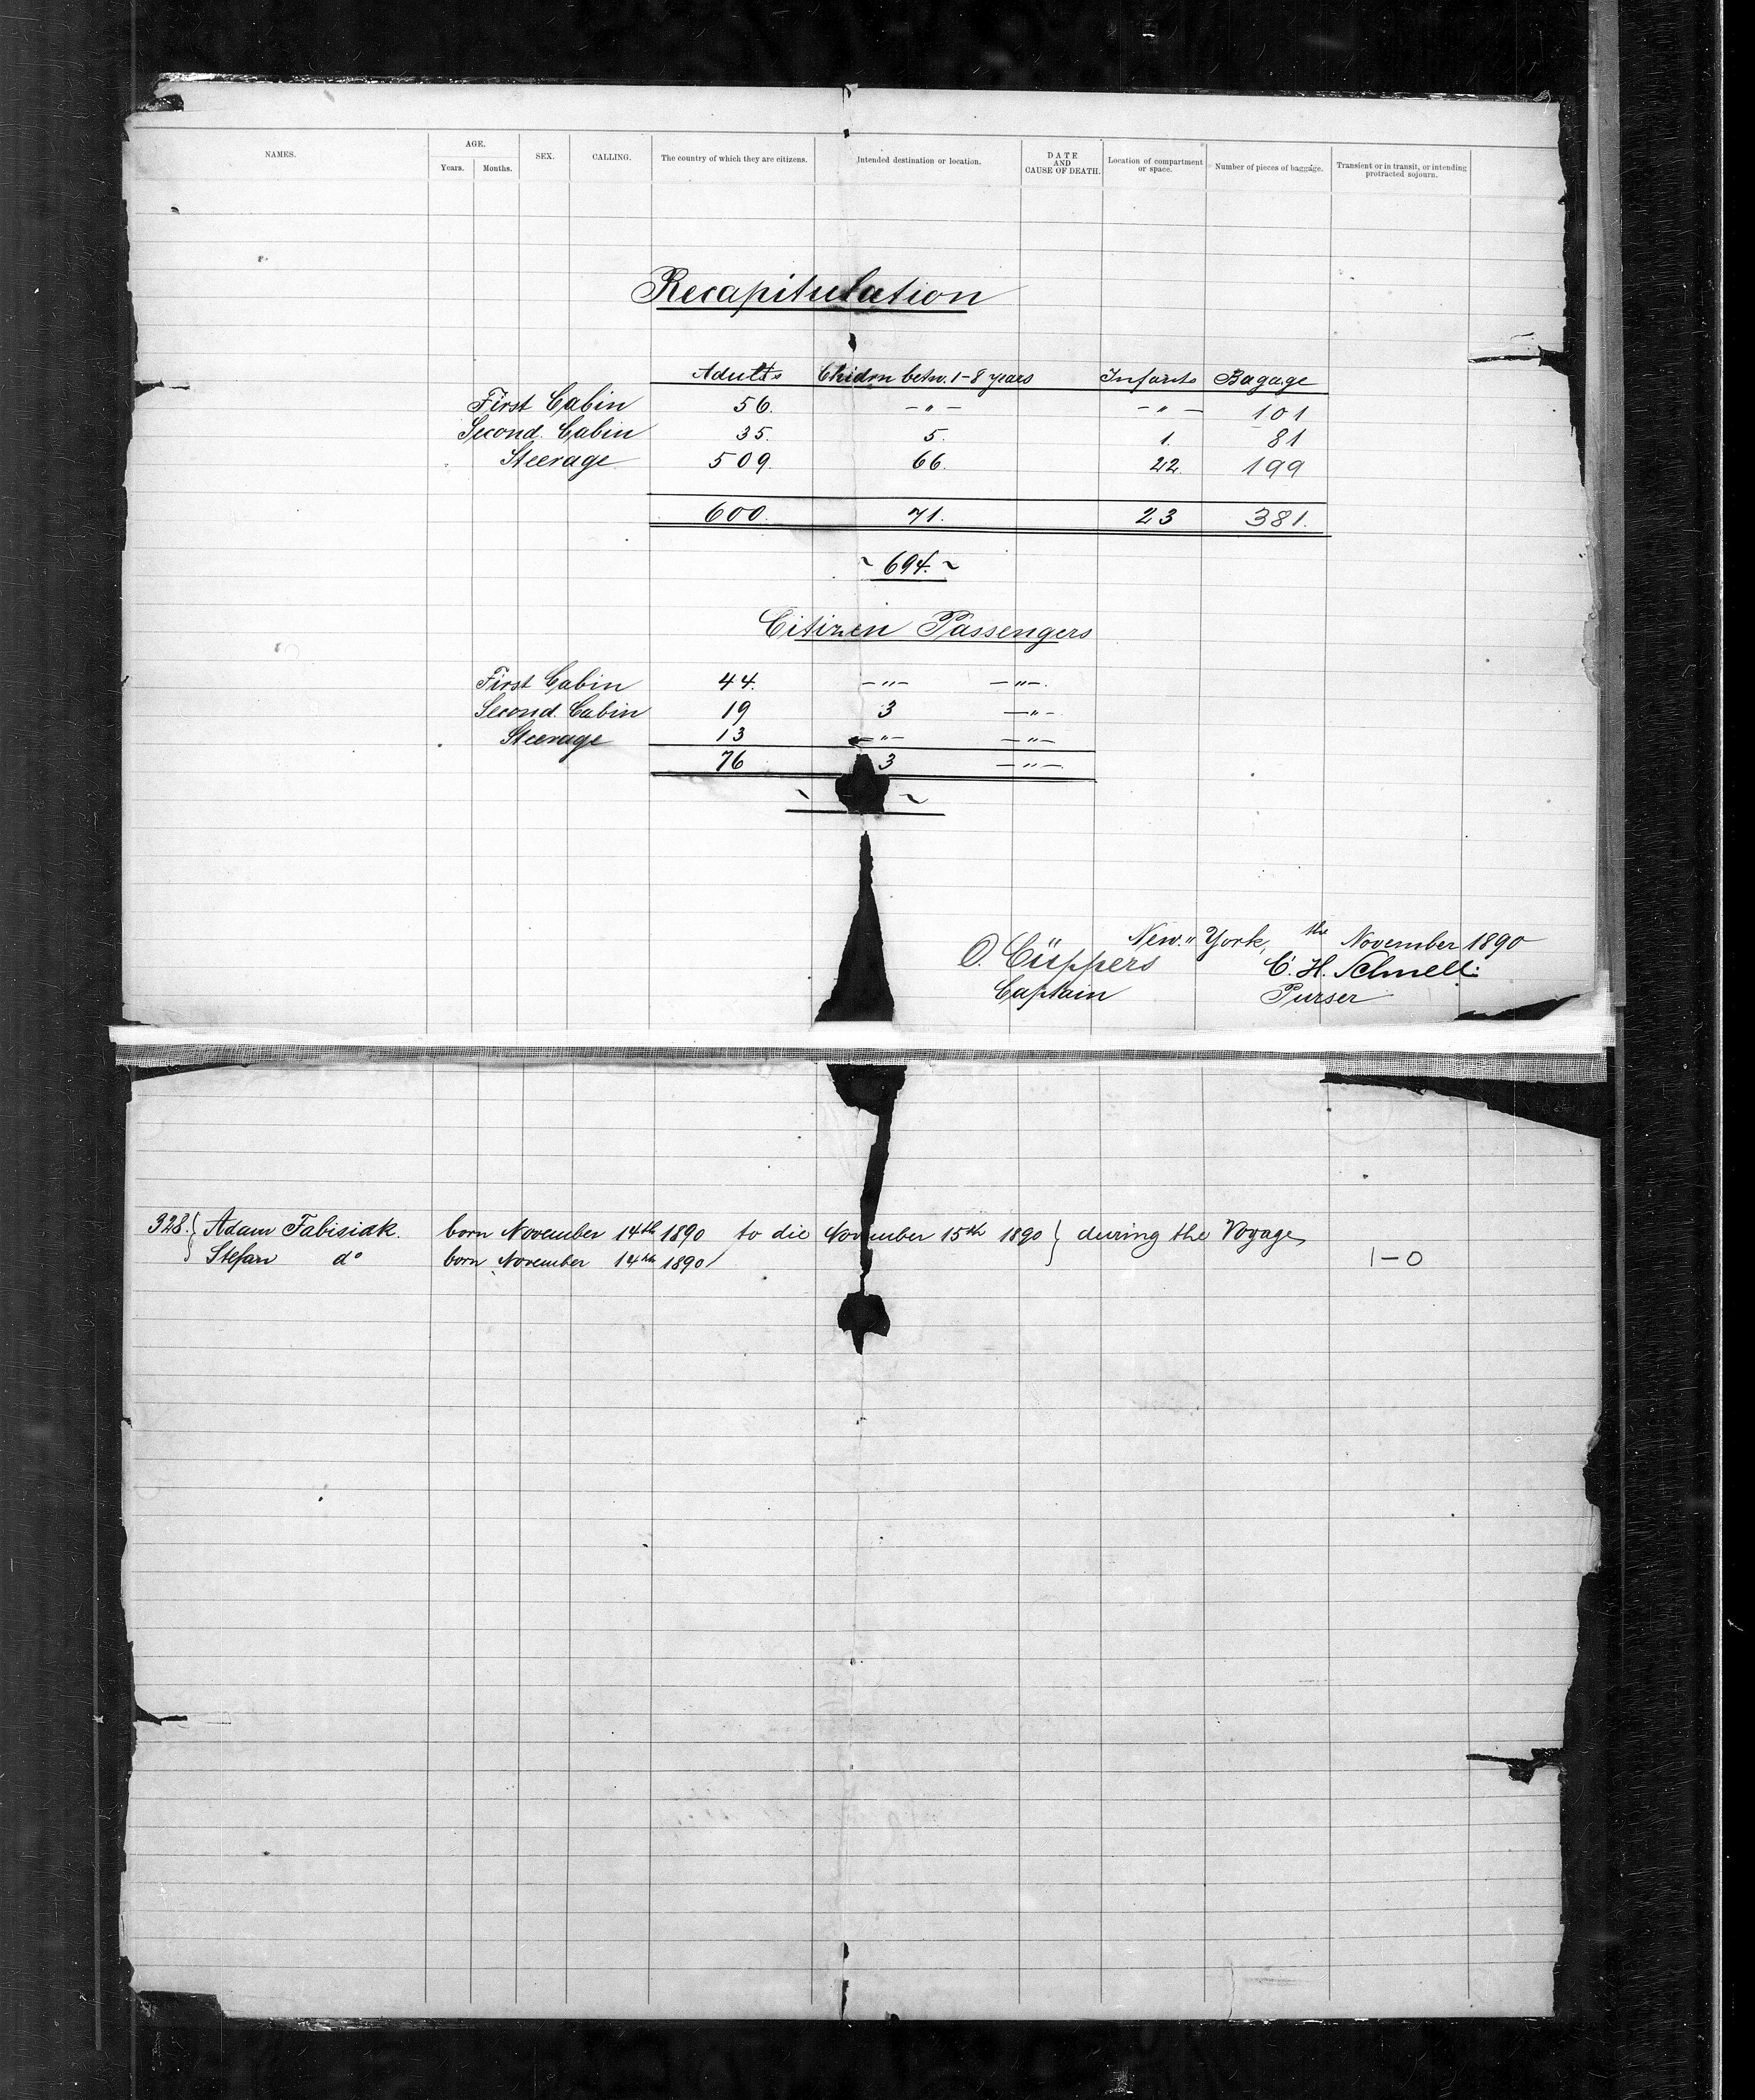 NAMES. AGE. Years. Months. SEX. CALLING. The country of which they are citizens. Intended destination or location. DATE AND CAUSE OF DEATH. Location of compartment or space. Number of pieces of baggage. Transient or in transit, or intending protracted sojourn.
Recapitulation
Adults Chidrn betw. 1-8 years Infants Bagage
First Cabin 56. -"- -"- 101
Second. Cabin 35. 5. 1. 81
Steerage 509. 66. 22. 199
600. 71. 23 381.
~ 694. ~
Citizen Passengers
First Cabin 44. -"- -"-.
Second. Cabin 19 3 -"-
Steerage 13 -"- -"-
76 3 -"-
~ ~
New. York, the November 1890
O. Cüppers C. H. Schnell.
Captain Purser
328. Adam Fabisiak. born November 14th 1890 to die November 15th 1890 } during the Voyage,
Stefan do born November 14th 1890 1-0